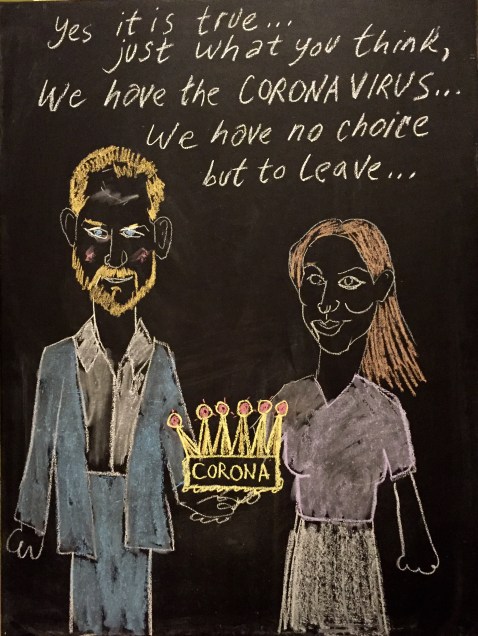 Yes it is true...
just what you think,
We have the CORONA VIRUS...
We have no choice
but to leave...
CORONA